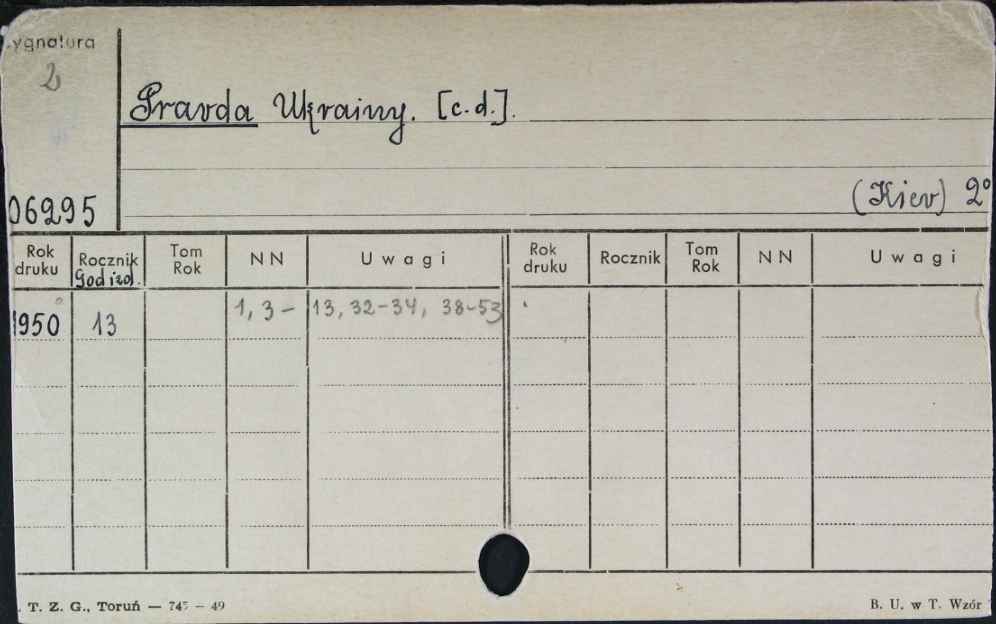 ygnatura
2
Pravda Ukrainy. [c.d.].
(Kiev) 2°
06295
Rok druku Rocznik Godizd. Tom Rok NN Uwagi Rok druku Rocznik Tom Rok NN Uwagi
950 13 1, 3- 13, 32-34, 38-53
. T. Z. G., Toruń — 745 - 49
B. U. w T. Wzór